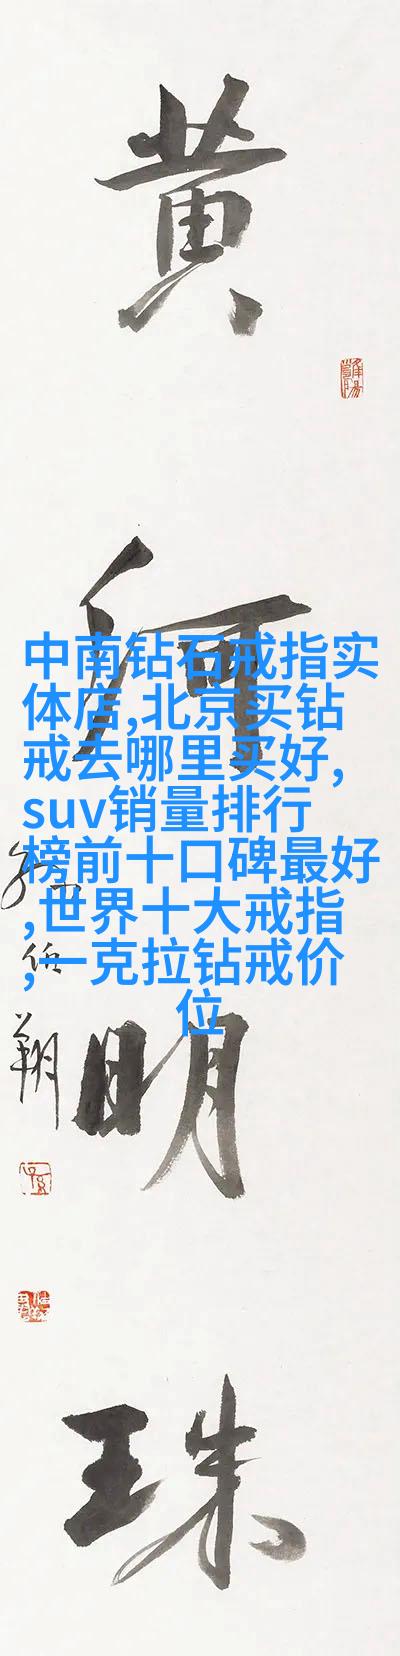 黄河明珠
中南钻石戒指实
体店,北京买钻
戒去哪里买好,
suv销量排行
榜前十口碑最好
,世界十大戒指
,一克拉钻戒价
位